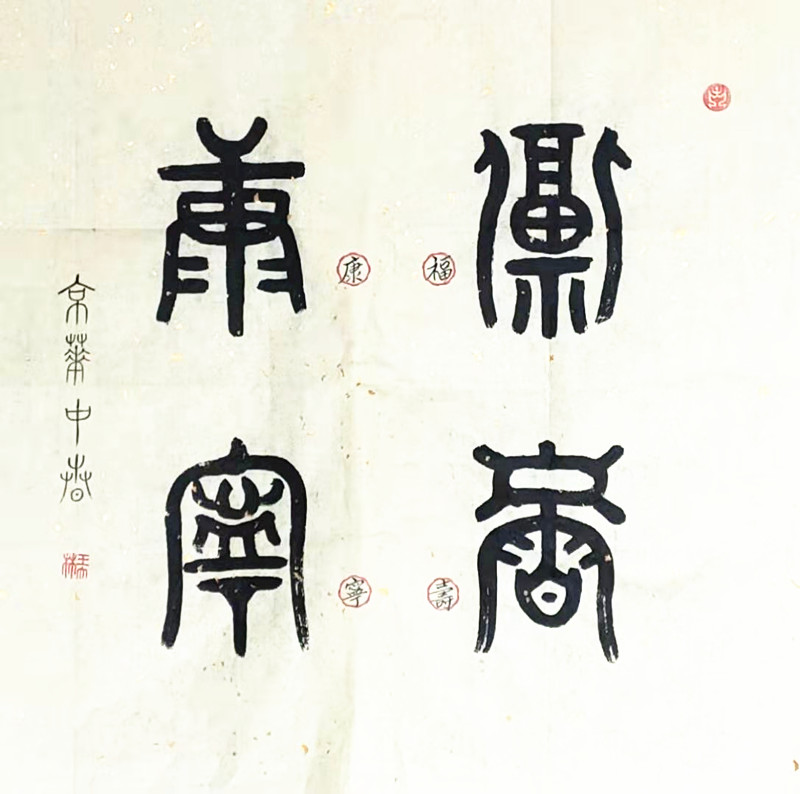 福壽
康寧
福
壽
康
寧
京華中春